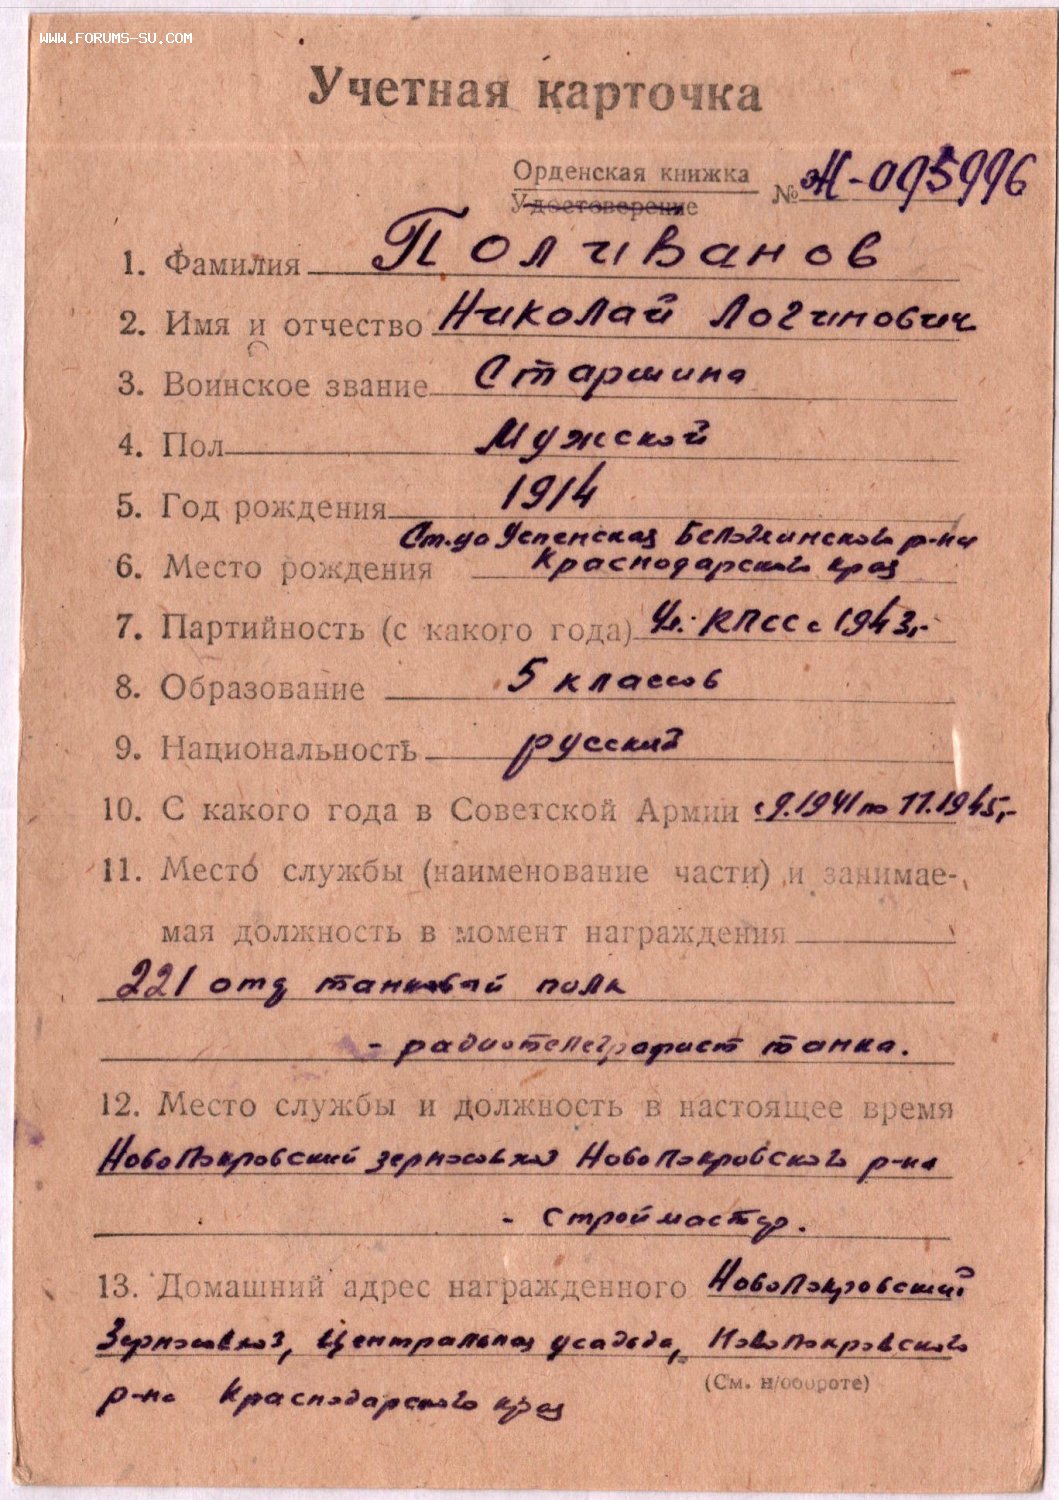 WWW.FORUMS-SU.COM
Учетная карточка
Орденская книжка
Удостоверение
№ Ж-095996
1. Фамилия Поливанов
2. Имя и отчество Николай Логинович
3. Воинское звание Старшина
4. Пол Мужской
5. Год рождения 1914
Ст.ца Успенская Белоглинского р-на
6. Место рождения Краснодарского края
7. Партийность (с какого года) Чл. КПСС с 1943,-
8. Образование 5 классов
9. Национальность русский
10. С какого года в Советской Армии с 9.1941 по 11.1945,-
11. Место службы (наименование части) и занимае-
мая должность в момент награждения
221 отд танковый полк
- радиотелеграфист танка.
12. Место службы и должность в настоящее время
Новопокровский зерносовхоз Новопокровского р-на
- строймастер.
13. Домашний адрес награжденного Новопокровский
Зерносовхоз, Центральная усадьба, Новопокровского
(См. н/обороте)
р-на Краснодарского края